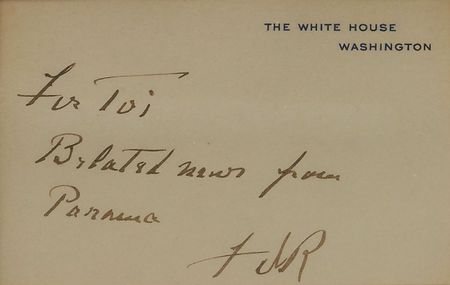 THE WHITE HOUSE
WASHINGTON
For Toi
Belated news from
Panama
FDR